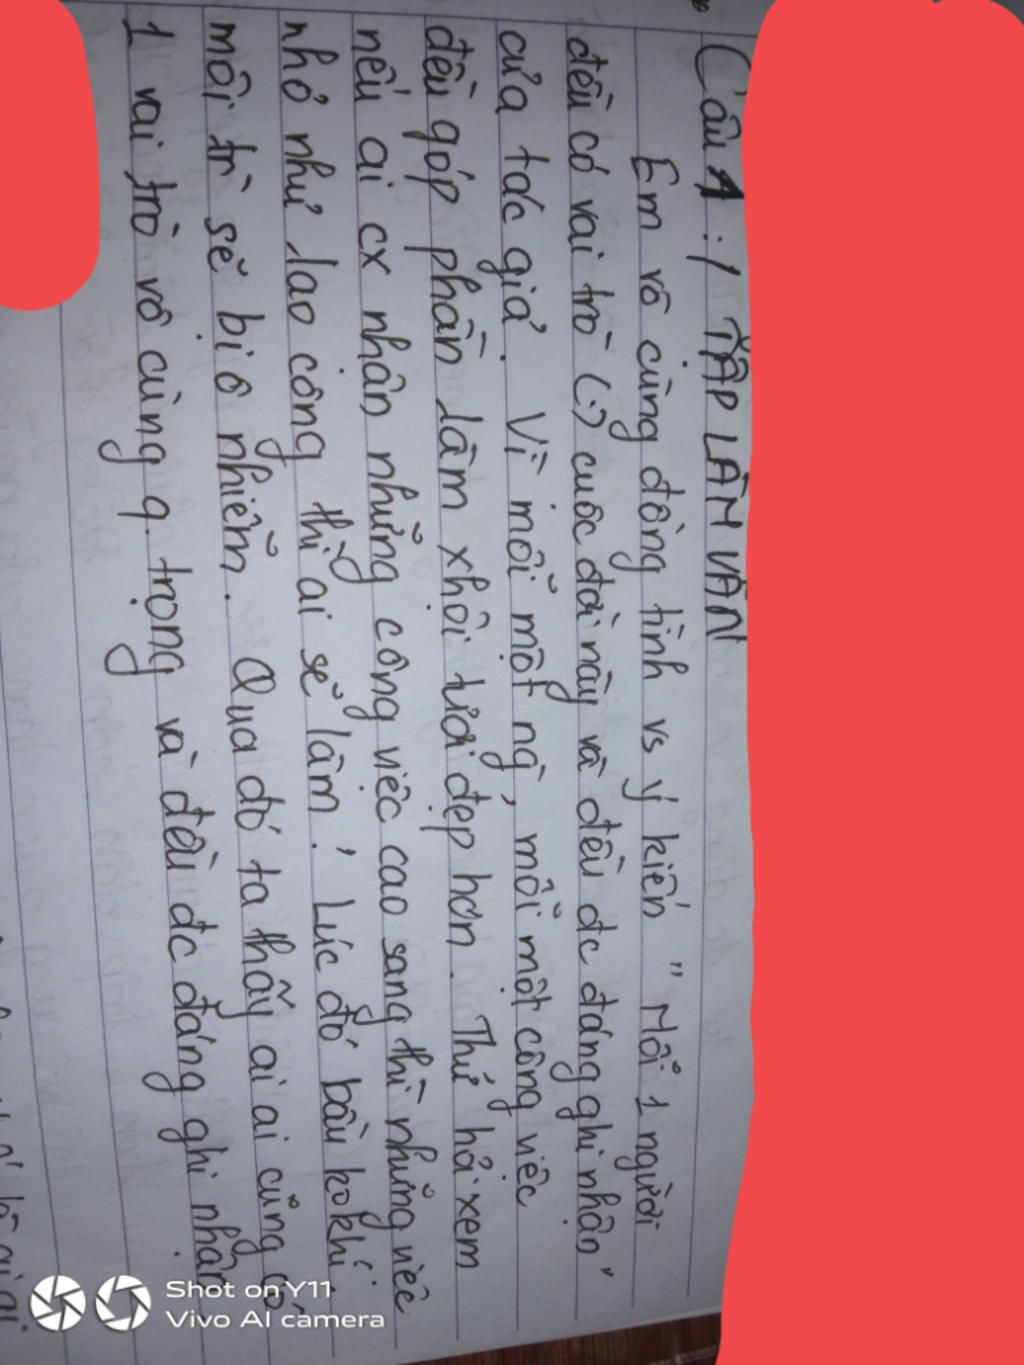 Câu 1: / TẬP LÀM VĂN
Em vô cùng đồng tình vs ý kiến " Mỗi 1 người
đều có vai trò (.) cuộc đời này và đều đc đáng ghi nhận"
của tác giả. Vì mỗi một ng, mỗi một công việc
đều góp phần làm xhội tươi đẹp hơn. Thử hỏi xem
nếu ai cx nhận những công việc cao sang thì những việc
nhỏ như lao công thì ai sẽ làm! Lúc đó bầu ko khí
môi tr sẽ bị ô nhiễm. Qua đó ta thấy ai ai cũng có
1 vai trò vô cùng q. trọng và đều đc đáng ghi nhận
Shot on Y11
Vivo AI camera